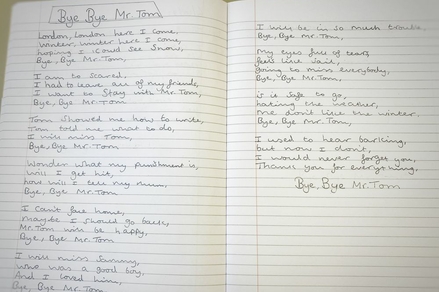 Bye Bye Mr. Tom
London, London here I come,
Winter, winter here I come,
hoping I could see snow,
Bye, Bye Mr. Tom,
I am to scared,
I had to leave all of my friends,
I want to stay with Mr. Tom,
Bye, Bye Mr. Tom
Tom showed me how to write,
Tom told me what to do,
I will miss Tom,
Bye, Bye Mr. Tom
Wonder what my punishment is,
will I get hit,
how will I tell my mum,
Bye, Bye Mr. Tom
I can't face home,
maybe I should go back,
Mr. Tom will be happy,
Bye, Bye Mr. Tom
I will miss Sammy,
who was a good boy,
And I loved him,
Bye, Bye Mr. Tom
I will be in so much trouble,
Bye, Bye Mr Tom,
My eyes full of tears
feels like Jail,
going to miss everybody,
Bye, Bye Mr. Tom,
it is safe to go,
hating the weather,
don't like the winter.
Bye, Bye Mr. Tom,
I used to hear barking,
but now I don't,
I would never forget you,
Thank you for everything,
Bye, Bye Mr Tom